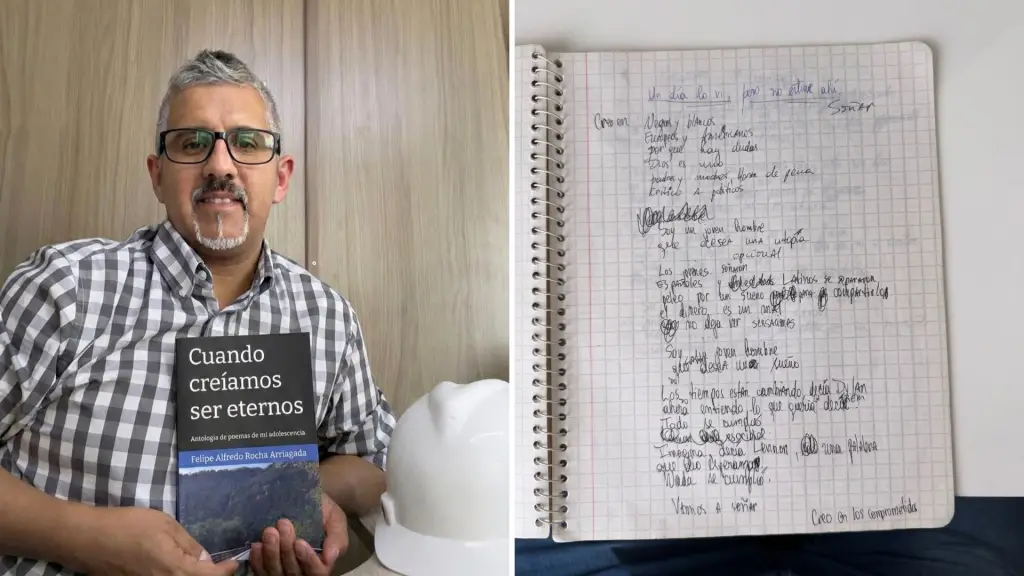 Cuando
creíamos
ser eternos
Antología de poemas de mi adolescencia
Felipe Alfredo Rocha Arriagada
Un día lo vi, pero no estuve ahí
Soñar
Creo en: Negros y blancos
Europeos y
por que hay dudas
Dios es uno
padres y machos,
a políticos
Soy un joven hombre
que desea una utopía
opcional
Los jóvenes soñaron
Españoles y Latinos se separaron
peleo por un sueño compartirlos
el dinero, es un
no deja ver
Soy joven hombre
que desea un sueño
Los tiempos están cambiando decía Dylan
ahora entiendo lo que quería decir
Todo se cumplio
Imagina, decía Lennon, una palabra
que dio
Nada se cumplio.
Vamos a soñar
Creo en los comprometidos